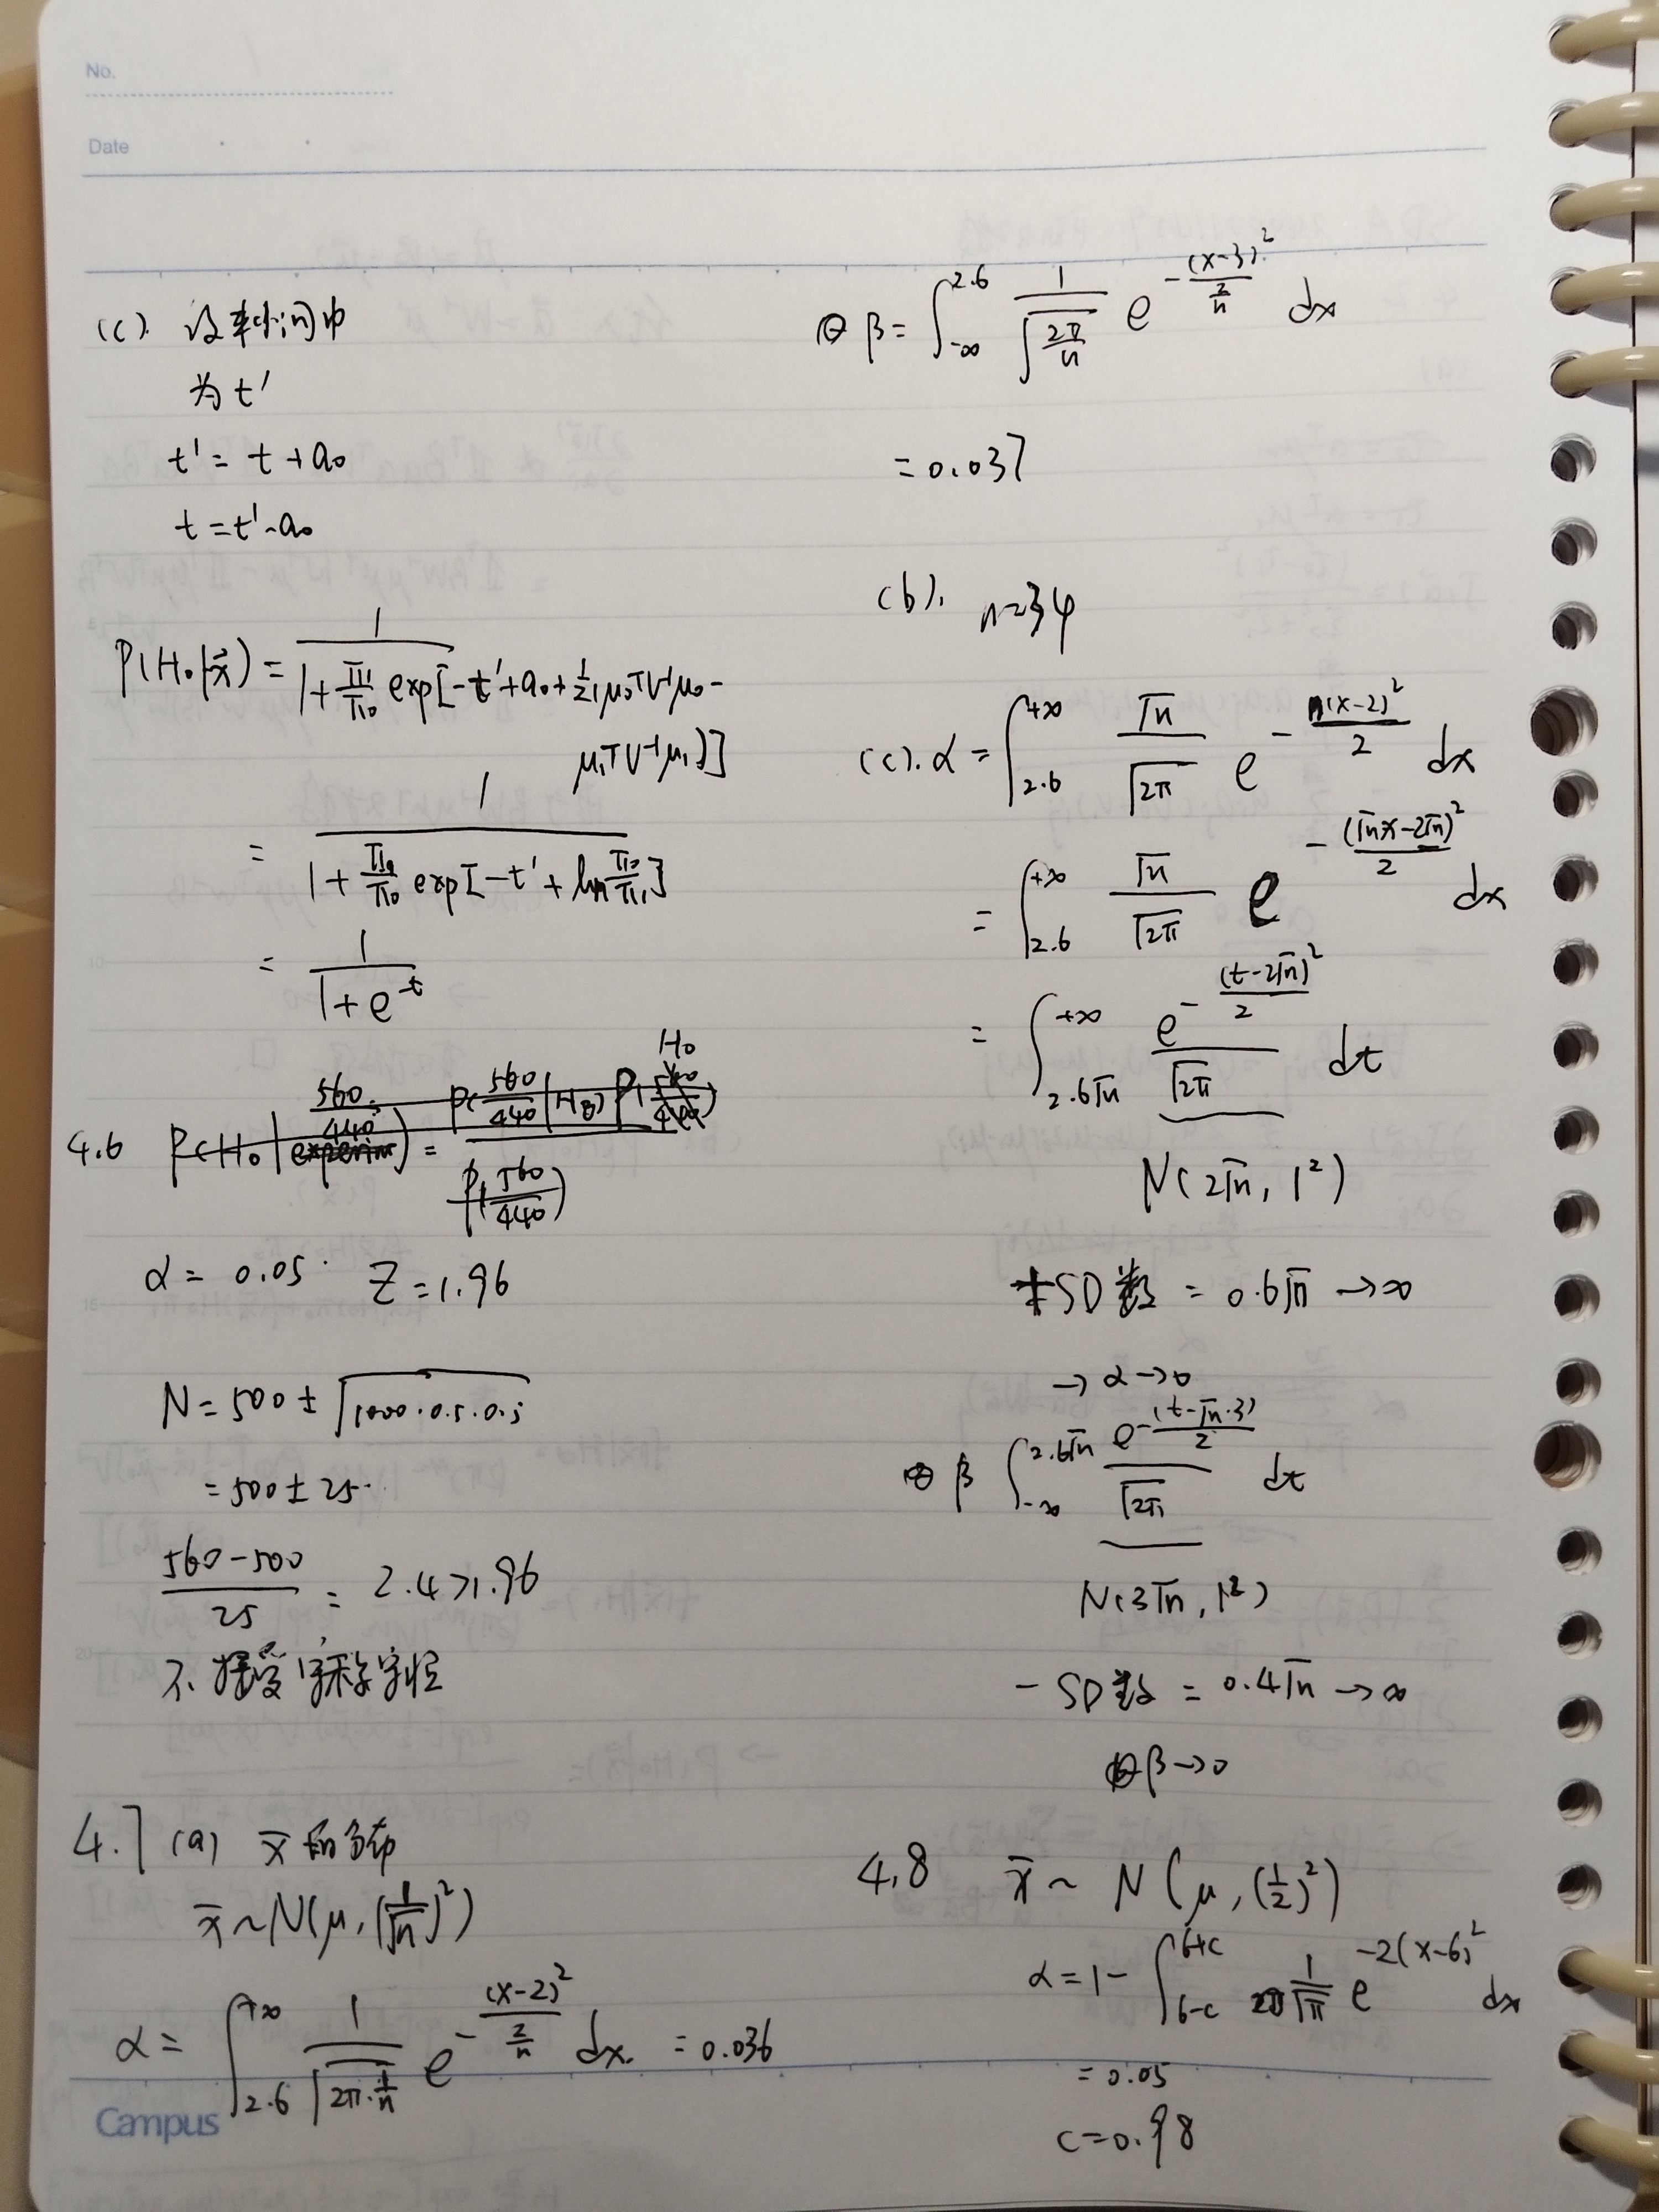 No.
Date
(c).
为 t'
t' = t + a₀
t = t' - a₀
P(H₀|x⃗) = 1 / (1 + π₁/π₀ exp[-t' + a₀ + ½(μ₀ᵀV⁻¹μ₀ -
μ₁ᵀV⁻¹μ₁)]
= 1 / (1 + π₁/π₀ exp[-t' + ln π₀/π₁])
= 1 / (1 + e^-t)
4.6
α = 0.05. Z = 1.96
N = 500 ± √(1000·0.5·0.5)
= 500 ± 25.
(560-500)/25 = 2.4 > 1.96
不接受宇称守恒
4.7 (a) x̄ 的分布
x̄ ~ N(μ, (1/√n)²)
α = ∫_2.6^+∞ 1/√(2π·1/n) e^(-(x-2)²/(2/n)) dx. = 0.036
Campus
β = ∫_-∞^2.6 1/√(2π/n) e^(-(x-3)²/(2/n)) dx
= 0.037
(b). n=34
(c). α = ∫_2.6^+∞ √n/√2π e^(-n(x-2)²/2) dx
= ∫_2.6^+∞ √n/√2π e^(-(√nx-2√n)²/2) dx
= ∫_2.6√n^+∞ e^(-(t-2√n)²/2)/√2π dt
N(2√n, 1²)
+SD数 = 0.6√n → ∞
→ α → 0
β ∫_-∞^2.6√n e^(-(t-√n·3)/2)/√2π dt
N(3√n, 1²)
- SD数 = 0.4√n → ∞
β → 0
4.8 x̄ ~ N(μ, (½)²)
α = 1 - ∫_6-c^6+c 1/√π e^(-2(x-6)²) dx
= 0.05
c = 0.98